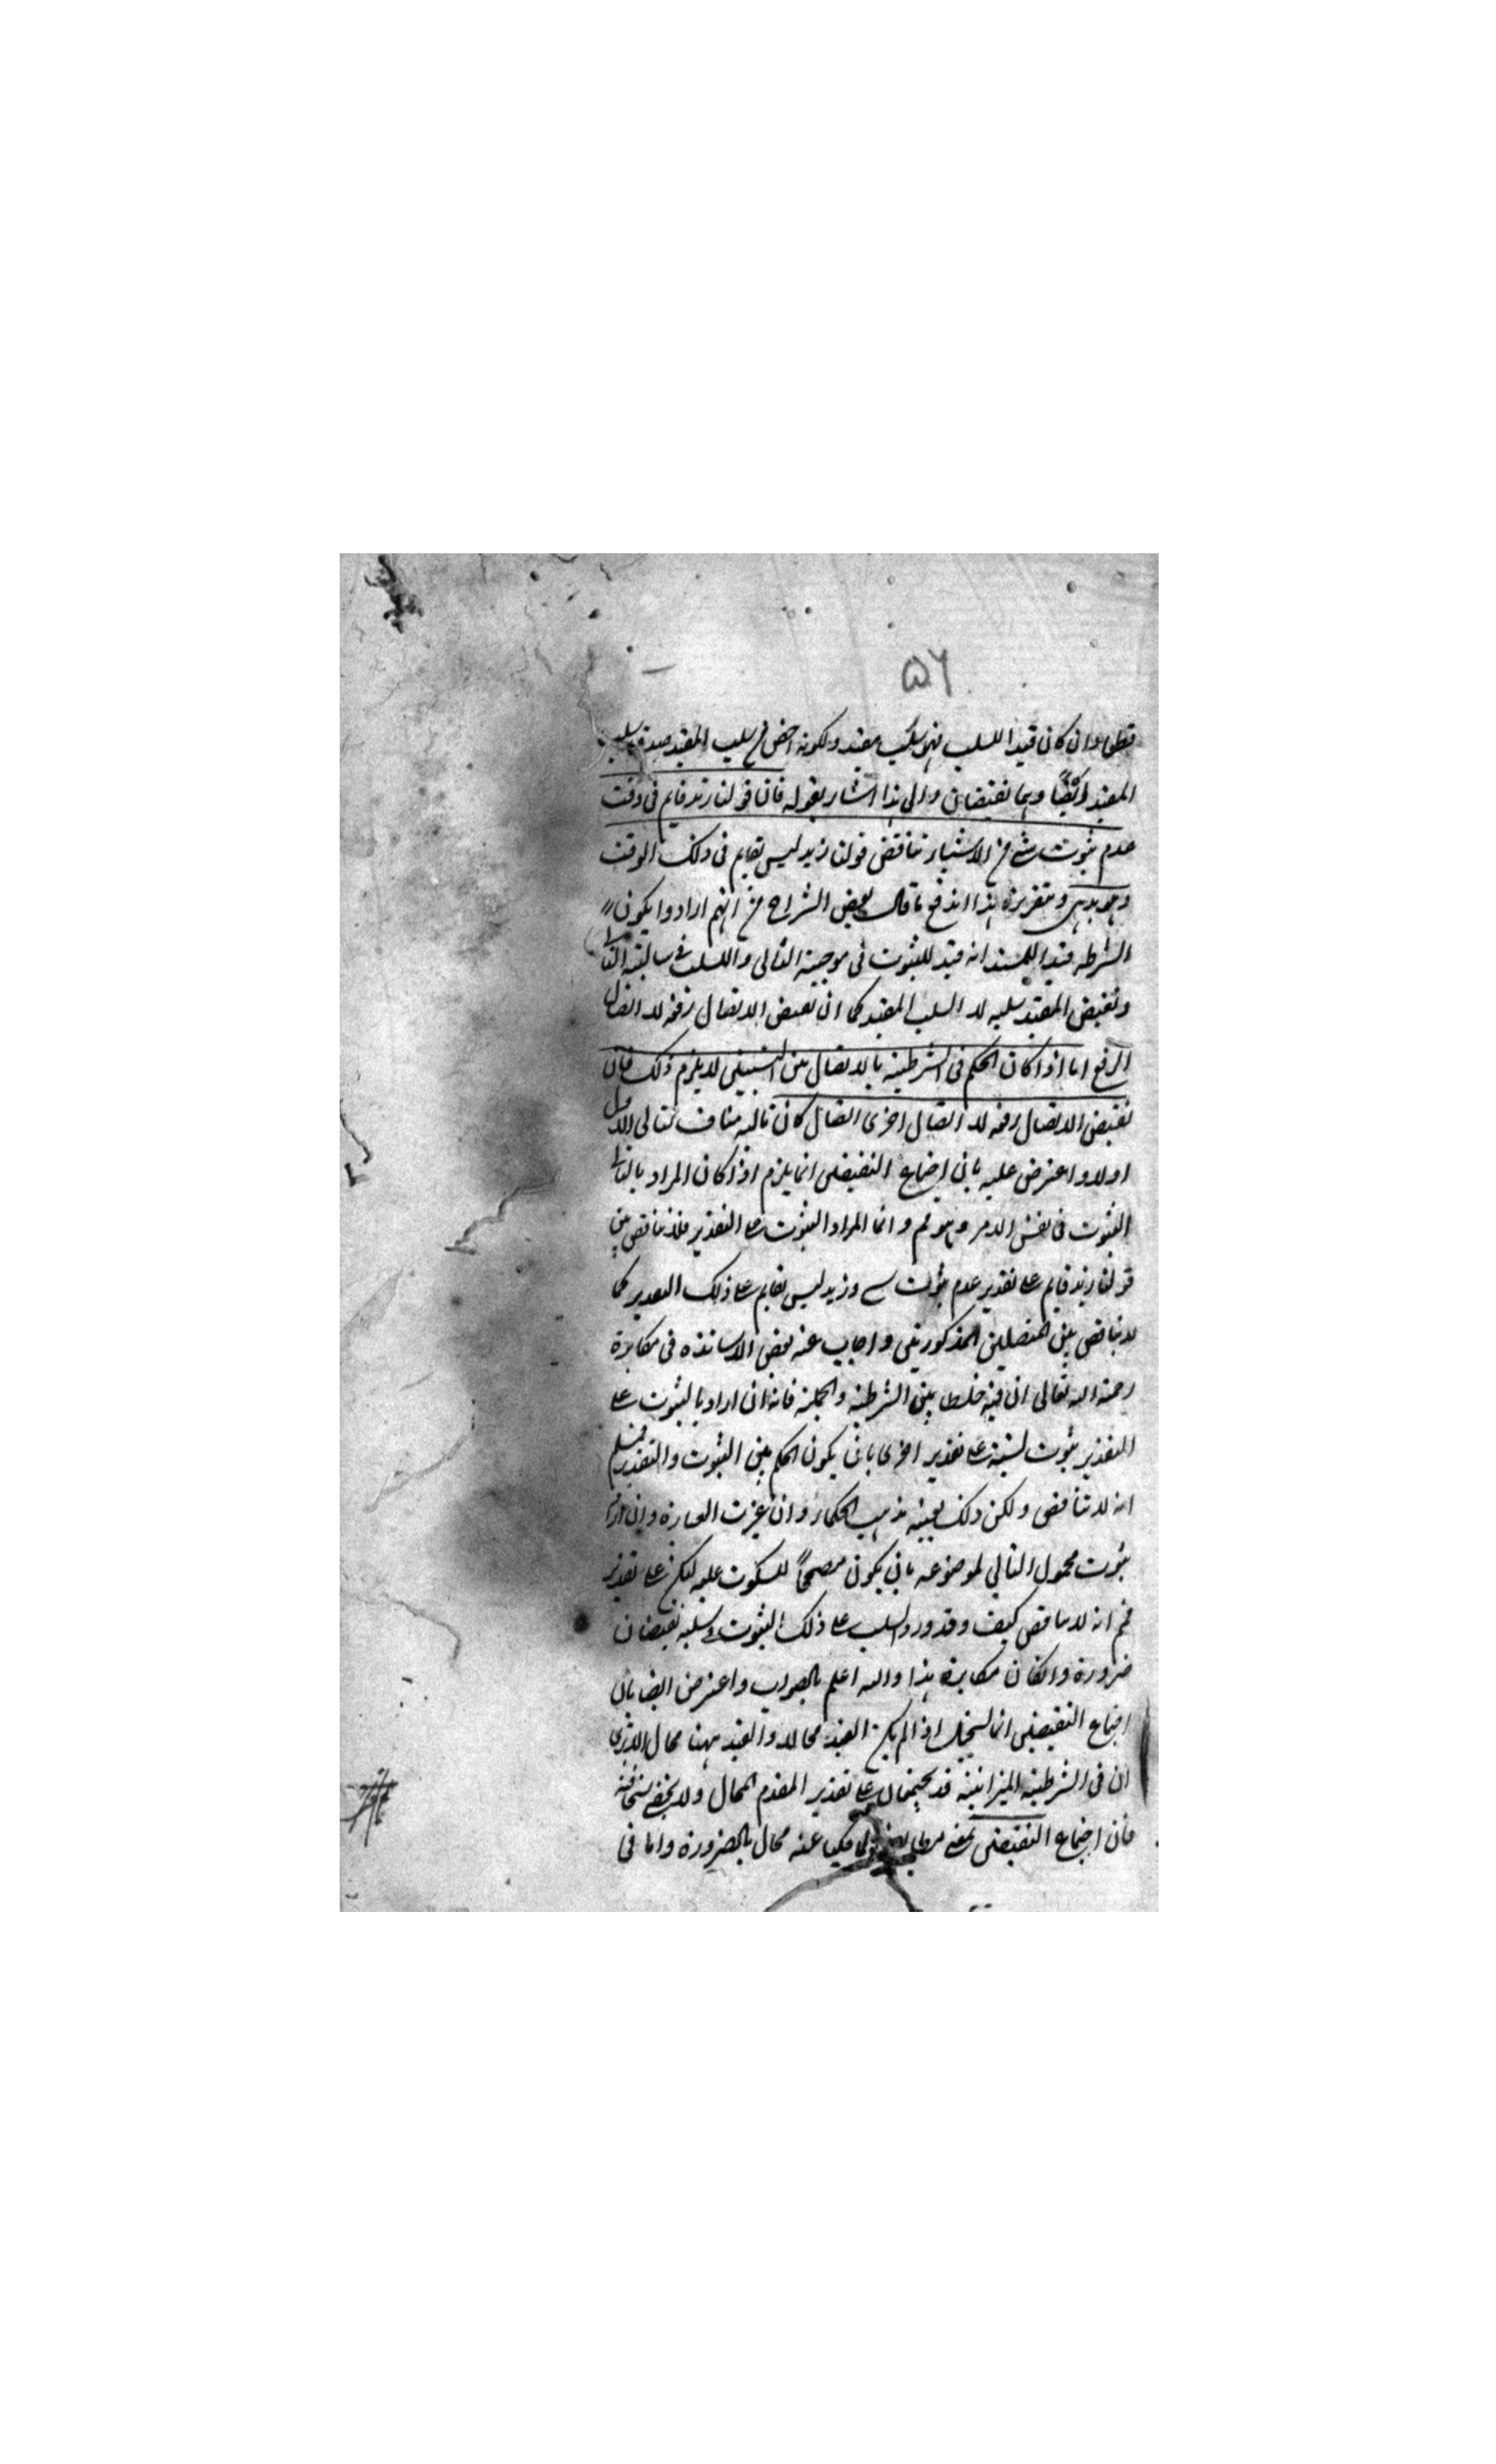 ۵۶
قطعا وان كان قيدا للسلب فهو سلب مقيد ولكونه اخص من سلب المقيد صدق سلب
المقيد ايضًا وهما نقيضان والى هذا اشار بقوله فان قولنا زيد قايم فى وقت
عدم ثبوت شئ من الاشياء يناقض قولنا زيد ليس بقايم فى ذلك الوقت
وهو بديهى وبتقريره هذا اندفع ما قال بعض الشراح من انهم ارادوا بكون
الشرط قيدا للمسند انه قيد للثبوت فى موجبة التالى والسلب فى سالبة التا
ونقيض المقيد سلبه لا السلب المقيد كما ان نقيض الاتصال رفعه لا اتصال
الرفع اما اذا كان الحكم فى الشرطية بالاتصال بين النسبتين لا يلزم ذلك فان
نقيض الاتصال رفعه لا اتصال اخرى اتصال كان تاليه مناف لتالى الاول
اولا واعترض عليه بان اجتماع النقيضين انما يلزم اذا كان المراد بالتا
الثبوت فى نفس الامر وهو مم وانما المراد الثبوت على التقدير فلا تناقض بين
قولنا زيد قايم على تقدير عدم ثبوت شے وزيد ليس بقايم على ذلك التقدير كما
لا تناقض بين المتصلين المذكورتين واجاب عنه بعض الاساتذه فى مكابرة
رحمة الله تعالى ان فيه خلط بين الشرطية والحملية فانه ان اراد بالثبوت على
التقدير ثبوت لنسبة على تقدير اخرى بان يكون الحكم بين الثبوت والتقدير فمسلم
انه لا تناقض ولكن ذلك بعينه مذهب الحكماء وان غيرت العبارة وان اراد
ثبوت محمول التالى لموضوعه بان يكون مصححًا للسكوت عليه لكن على تقدير
فمم انه لا تناقض كيف وقد ورد السلب على ذلك الثبوت وسلبه نقيضان
ضرورة وانكان مكابرة هذا والله اعلم بالصواب واعترض ايضا بان
اجتماع النقيضين انما يستحيل اذا لم يكن القيد محالا والقيد ههنا محال الا ترى
ان فى الشرطية الميزانية قد يجتمعان على تقدير المقدم المحال ولا يخفى سخافته
فان اجتماع النقيضين بمعنى محكيا عنه محال بالضرورة واما فى